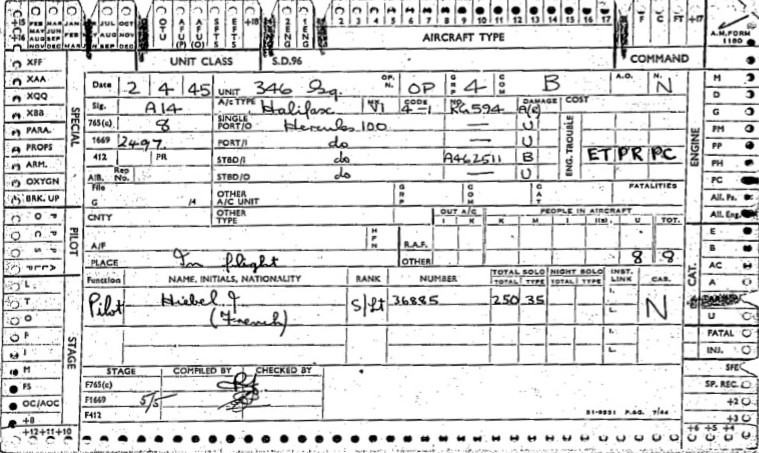 +15 FEB MAR JAN JUL AUG OCT OTU AFU (P) AFU (O) SPTS EFTS +18 2 ENG 1 ENG 2 3 4 5 6 7 8 9 10 11 12 13 14 15 16 17 F C FT +17
+16 MAY JUN
AUG SEP
NOV DEC
AIRCRAFT TYPE
A.M. FORM 1180
UNIT CLASS S.D.96 COMMAND
XFF
XAA
XQQ
XBB
PARA.
PROPS
ARM.
OXYGN
BRK. UP
SPECIAL
Date 2 4 45 UNIT 346 Sq. OP. N. OP GRP 4 B A.O. N. N
Sig. A14 A/c TYPE Halifax MK VI CODE 4-1 NO. RG594 DAMAGE A(c) COST
765(c) 8 SINGLE PORT/O Hercules 100 — U
1669 2497 PORT/I do — U
412 PR STBD/I do A462511 B
A.I.B. Rep No. STBD/O do — U
ENG. TROUBLE ET PR PC
File G /4 OTHER A/C UNIT GRP COM CAT FATALITIES
CNTY OTHER TYPE OUT A/C PEOPLE IN AIRCRAFT
I K K M I I(s) U TOT.
A/F HFN R.A.F.
PLACE In flight OTHER 8 8
Function NAME, INITIALS, NATIONALITY RANK NUMBER TOTAL SOLO NIGHT SOLO INST. LINK CAS.
TOTAL TYPE TOTAL TYPE I.
Pilot Hiebel J S/Lt 36885 250 35 L. N
(French) I.
L.
STAGE COMPILED BY CHECKED BY
F765(c)
F1669 5/5
F412
51-9331 P.&G. 7/44
PILOT
L
T
O
P
I
M
FS
OC/AOC
+8
+12+11+10
STAGE
ENGINE
M
D
G
FM
FP
PH
PC
All. Ps.
All. Eng.
CAT.
E
B
AC
A
U
FATAL
INJ.
SFE
SP. REC.
+2
+3
+6 +5 +4